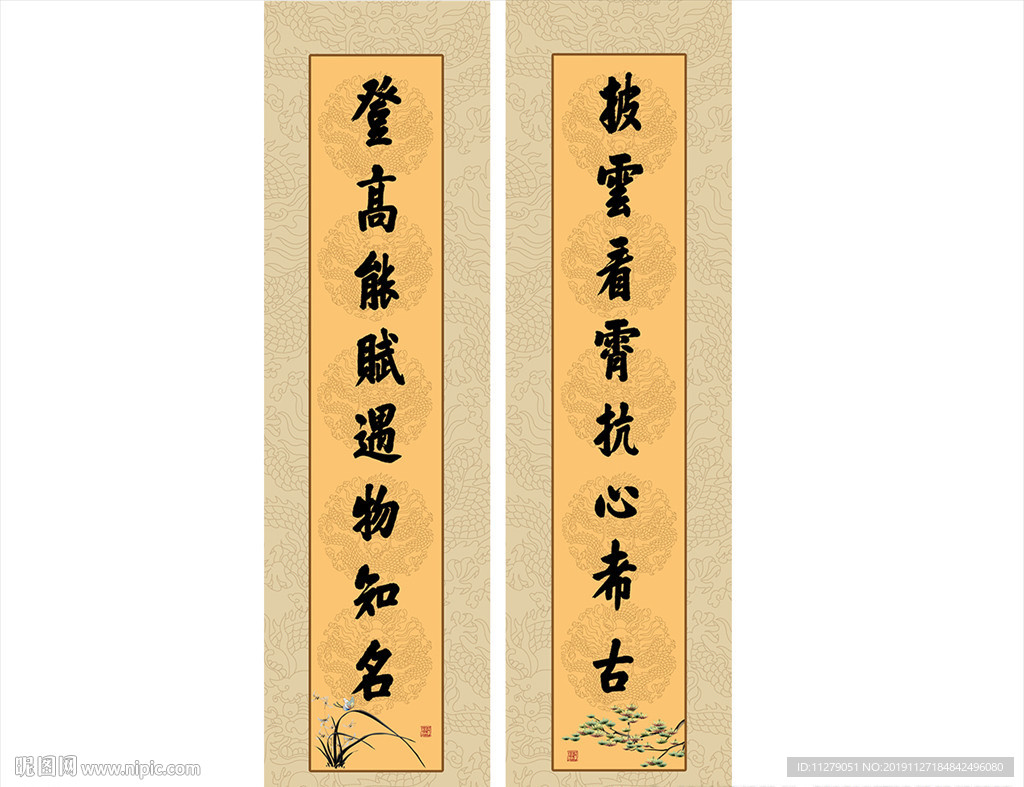 披雲看霄抗心希古
登高能賦遇物知名
昵图网 www.nipic.com
ID:11279051 NO:20191127184842496080